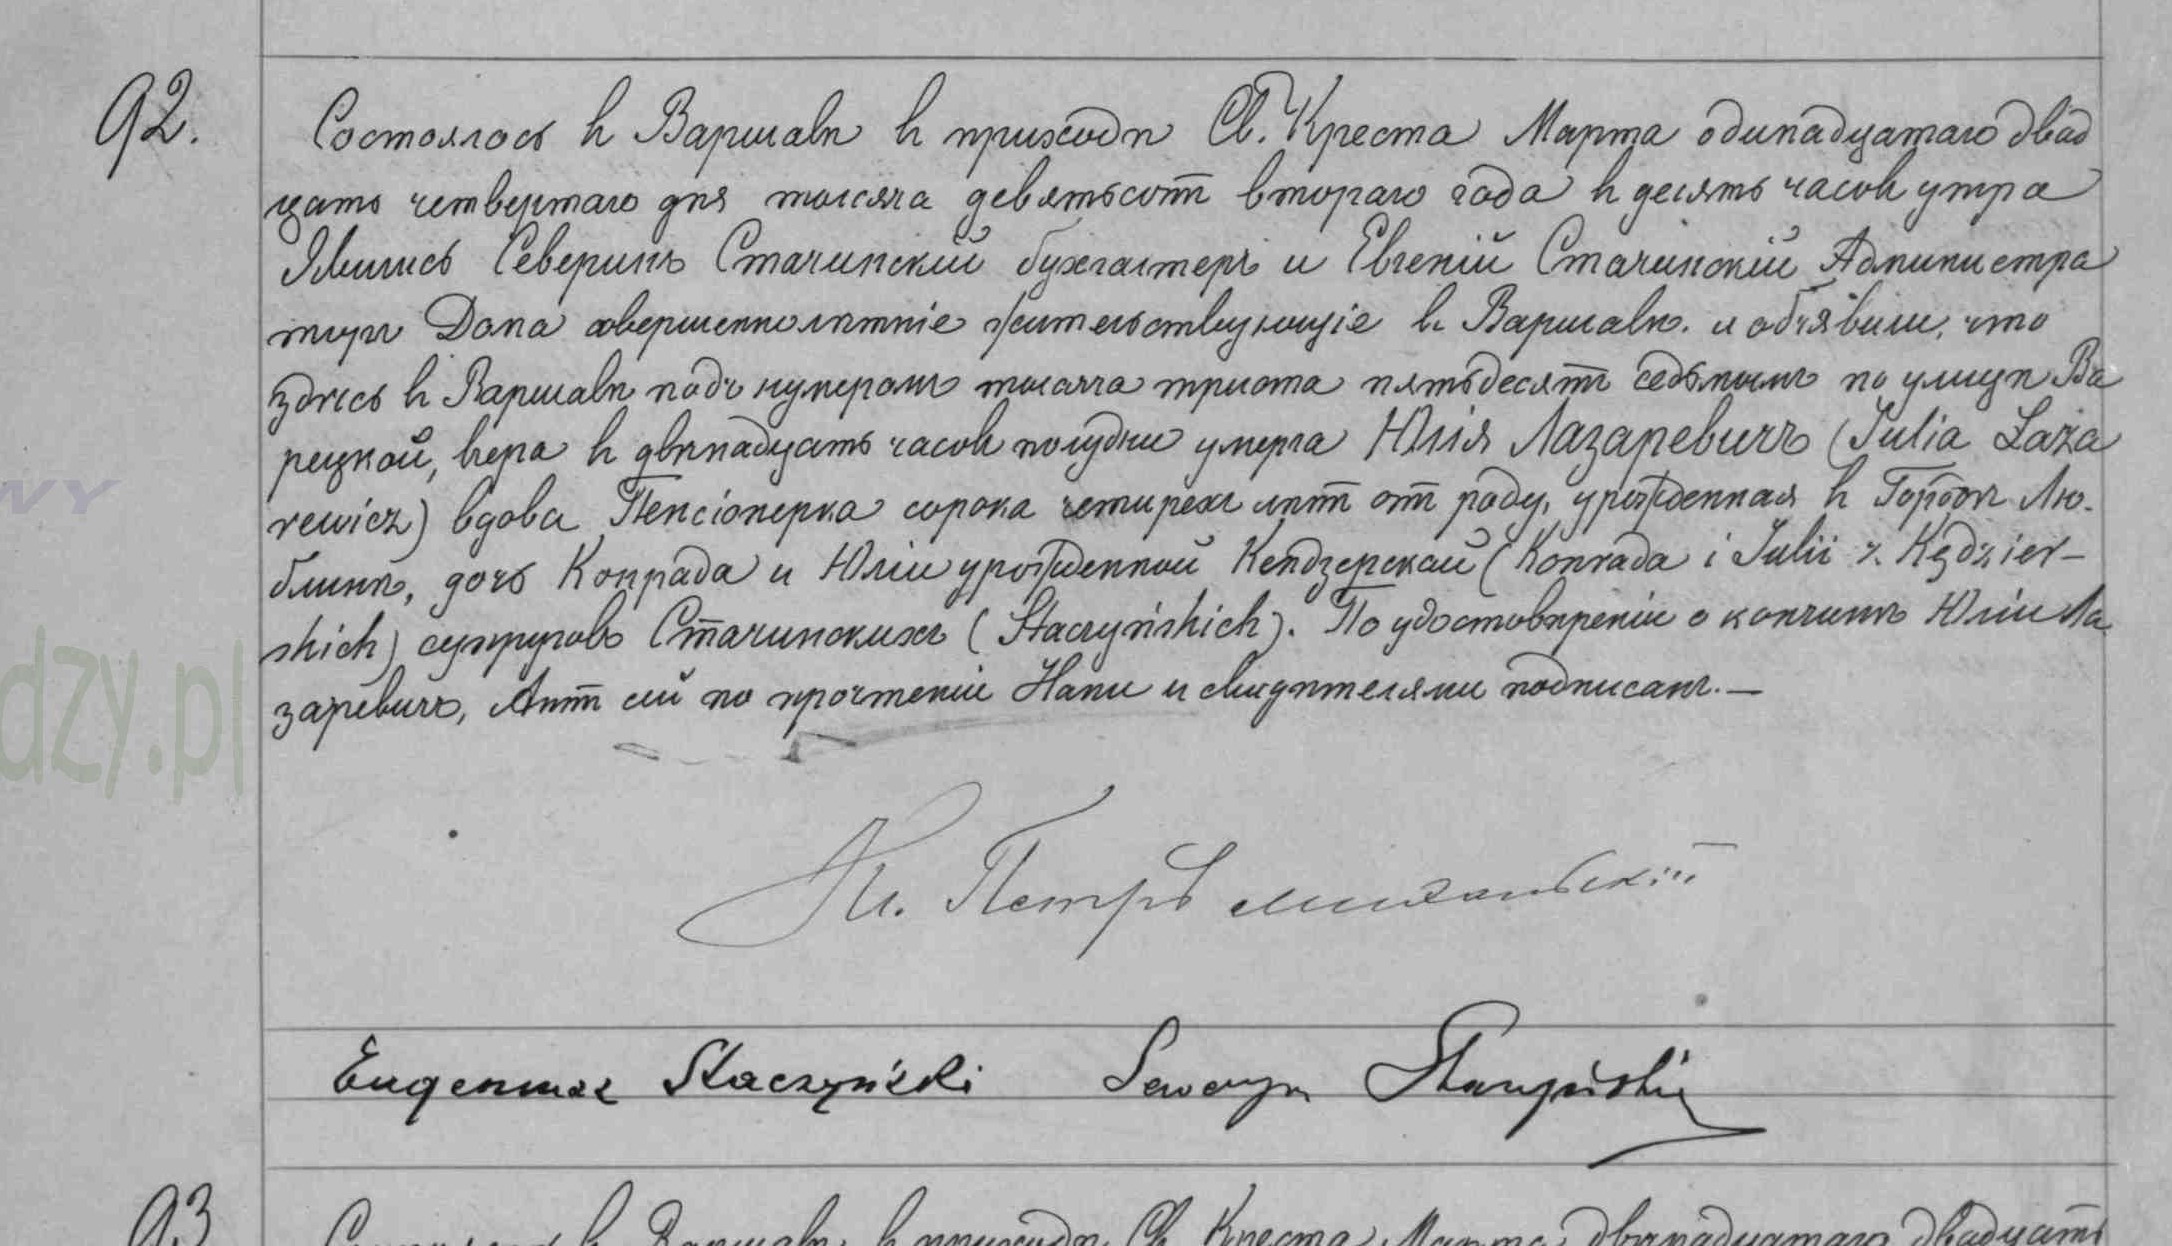 92.
Состоялось въ Варшавѣ въ приходѣ Св. Креста Марта одинадцатаго двад
цать четвертаго дня тысяча девятьсотъ втораго года въ десять часовъ утра
Явились Северинъ Стачинскій бухгалтеръ и Евгеній Стачинскій Администра
торъ Дома совершеннолѣтніе жительствующіе въ Варшавѣ. и объявили, что
здѣсь въ Варшавѣ подъ нумеромъ тысяча триста пятьдесятъ седьмымъ по улицѣ Ва
рецкой, вчера въ двѣнадцать часовъ полудни умерла Юлія Лазаревичъ (Julia Łaza
rewicz) вдова Пенсіонерка сорока четырехъ лѣтъ отъ роду, урожденная въ Городѣ Лю-
блинѣ, дочь Конрада и Юліи урожденной Кендзерской (Konrada i Julii z Kędzier-
skich) супруговъ Стачинскихъ (Staczyńskich). По удостовѣреніи о кончинѣ Юліи Ла
заревичъ, Актъ сей по прочтеніи Нами и свидѣтелями подписанъ. —
Кс. Петръ
Eugeniusz Staczyński Seweryn Staczyński
93
Состоялось въ Варшавѣ въ приходѣ Св. Креста Марта двѣнадцатаго двадцать
WY
dzy.pl